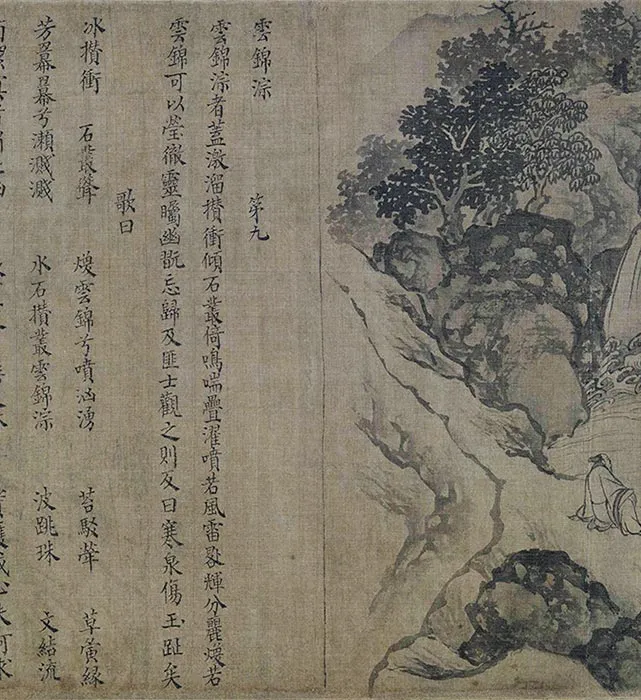 雲錦淙 第九
雲錦淙者蓋激溜攢衝傾石叢倚鳴喘疊濯噴若風雷輝分麗煥若
雲錦可以瑩徹靈矚幽翫忘歸及匪士觀之則反曰寒泉傷玉趾矣
歌曰
水攢衝 石叢聳 煥雲錦兮噴洶湧 苔駁犖 草夤緣
芳冪冪兮瀨濺濺 水石攢叢雲錦淙 波跳珠 文結流